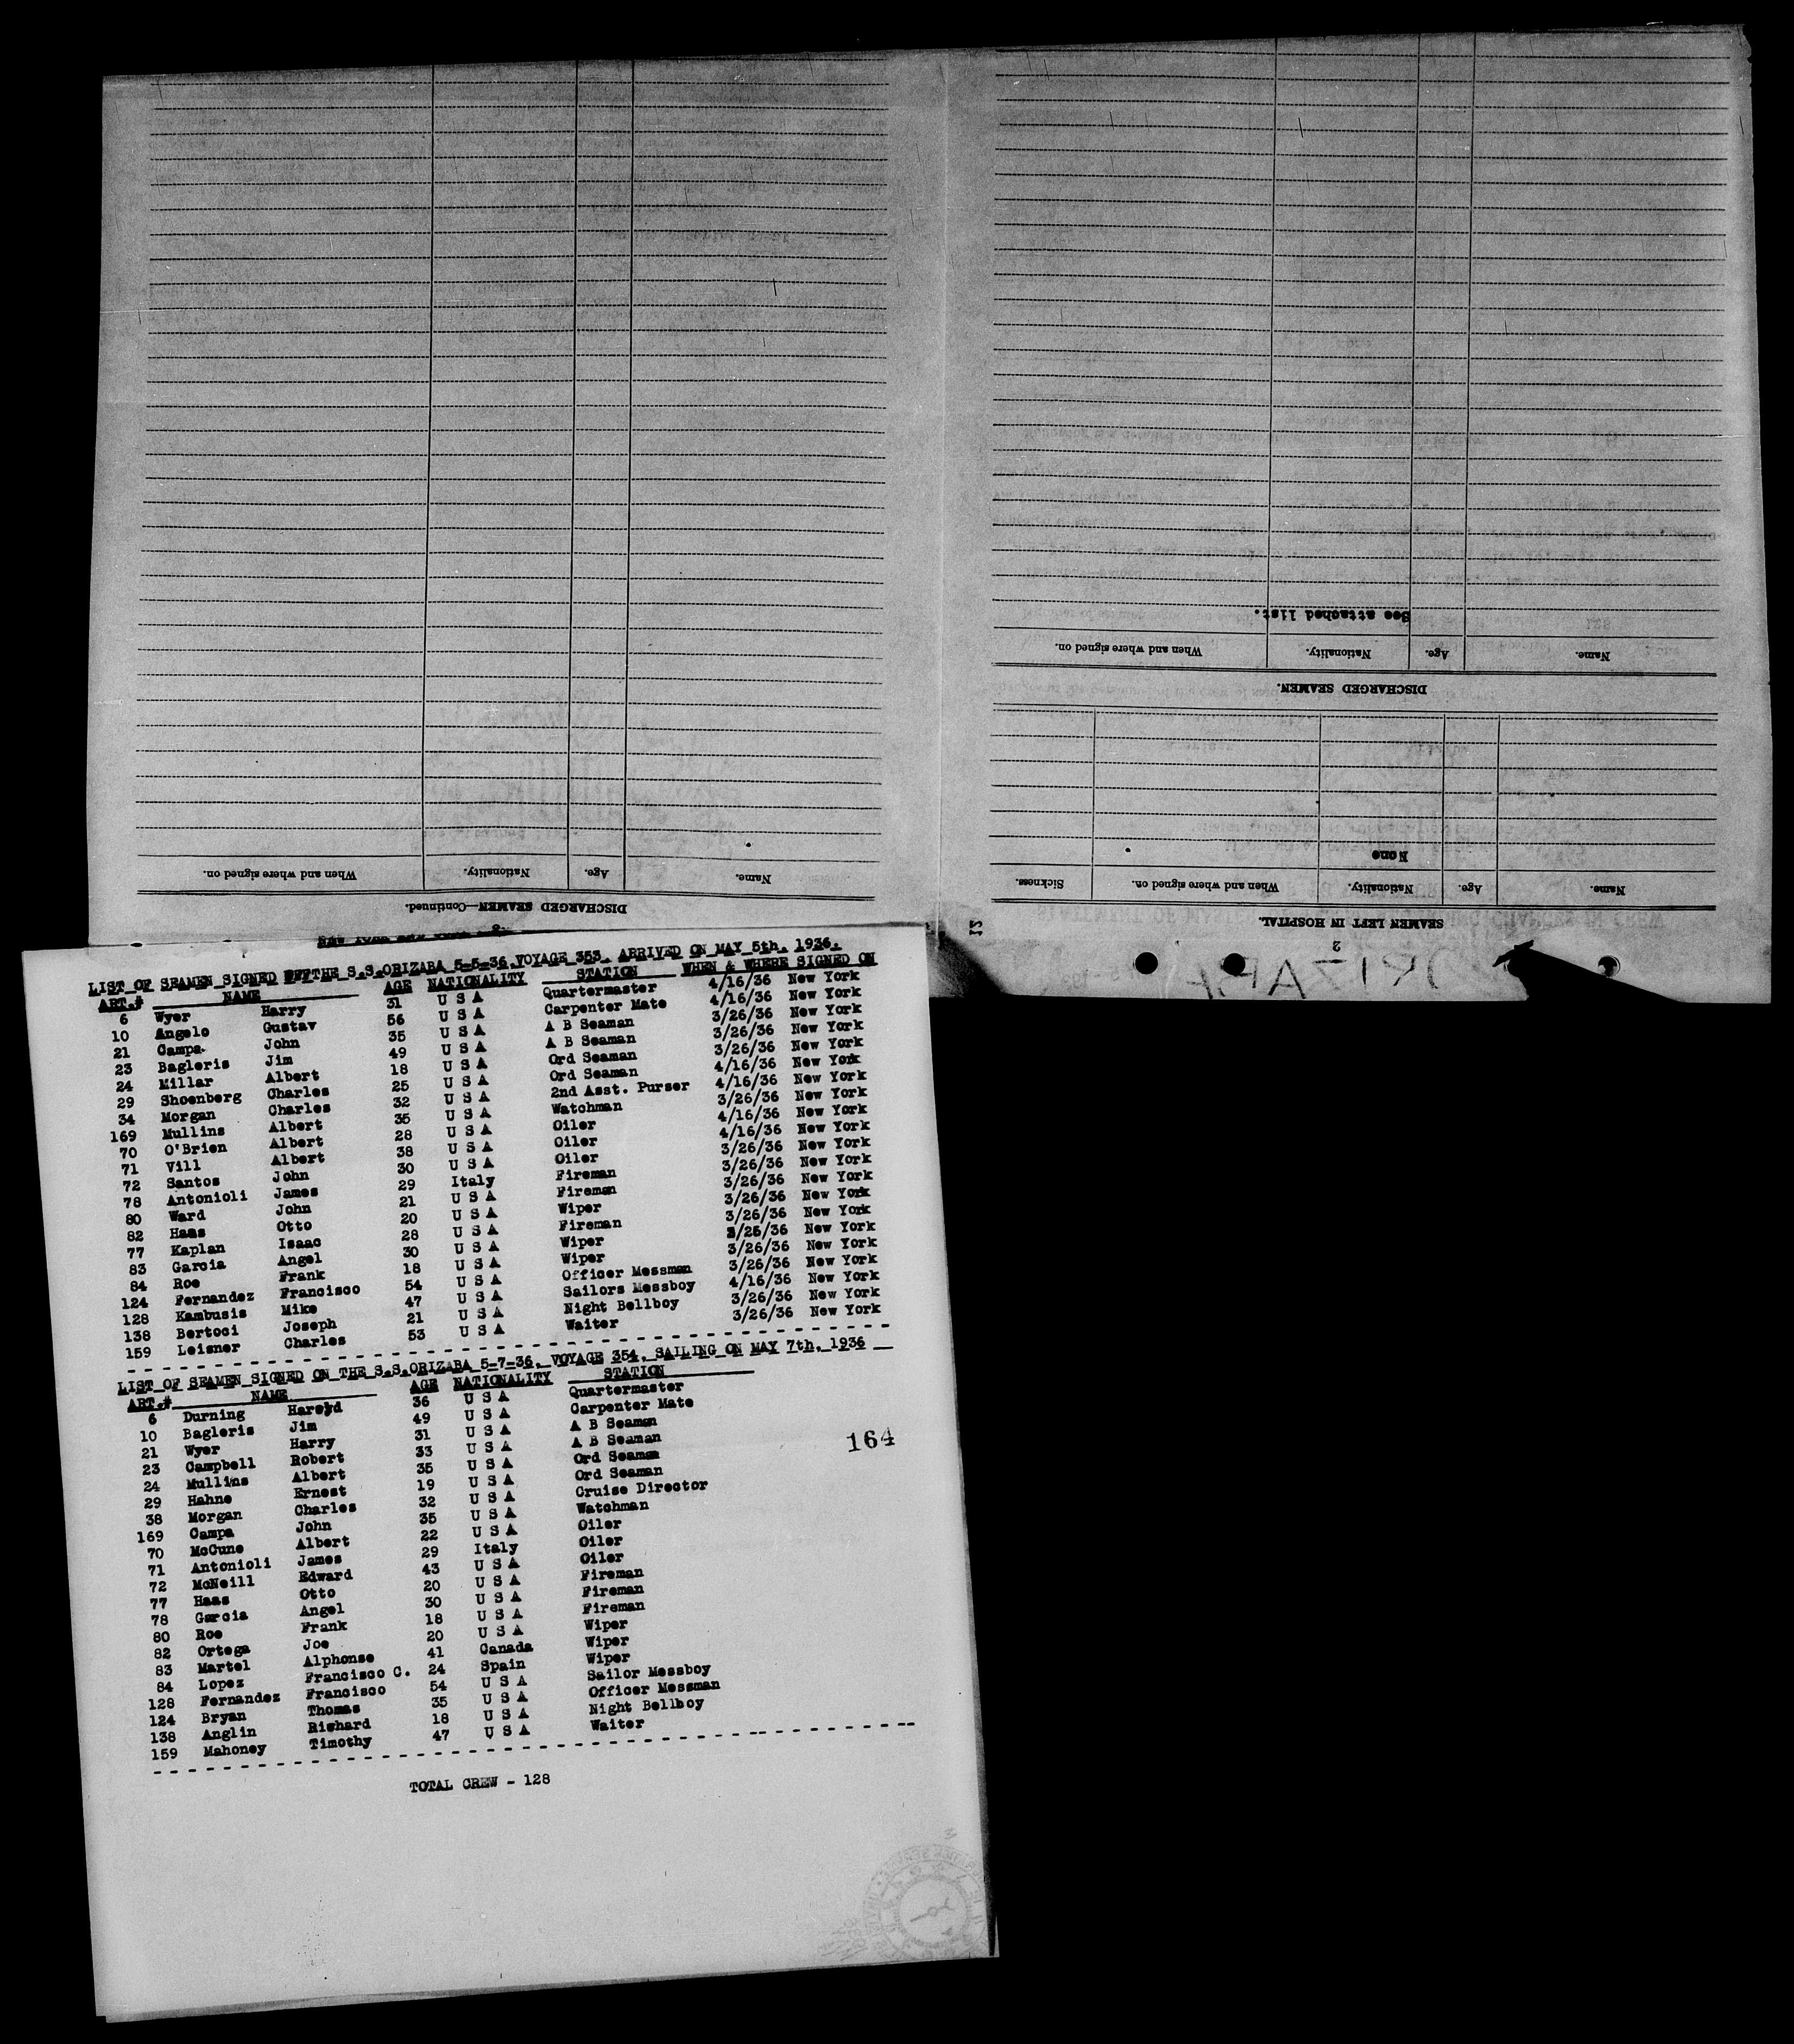 DISCHARGED SEAMEN—Continued.
Name. Age. Nationality. When and where signed on.
2
SEAMEN LEFT IN HOSPITAL.
Name. Age. Nationality. When and where signed on. Sickness.
None
DISCHARGED SEAMEN.
Name. Age. Nationality. When and where signed on.
See attached list.
ORIZABA
LIST OF SEAMEN SIGNED THE S.S.ORIZABA 5-5-36. VOYAGE 353. ARRIVED ON MAY 5th. 1936.
ART.# NAME AGE NATIONALITY STATION WHEN & WHERE SIGNED ON
6 Wyer Harry 31 U S A Quartermaster 4/16/36 New York
10 Angelo Gustav 56 U S A Carpenter Mate 4/16/36 New York
21 Campa John 35 U S A A B Seaman 3/26/36 New York
23 Bagleris Jim 49 U S A A B Seaman 3/26/36 New York
24 Millar Albert 18 U S A Ord Seaman 3/26/36 New York
29 Shoenberg Charles 25 U S A Ord Seaman 4/16/36 New York
34 Morgan Charles 32 U S A 2nd Asst. Purser 4/16/36 New York
169 Mullins Albert 35 U S A Watchman 3/26/36 New York
70 O'Brien Albert 28 U S A Oiler 4/16/36 New York
71 Vill Albert 38 U S A Oiler 4/16/36 New York
72 Santos John 30 U S A Oiler 3/26/36 New York
78 Antonioli James 29 Italy Fireman 3/26/36 New York
80 Ward John 21 U S A Fireman 3/26/36 New York
82 Haas Otto 20 U S A Wiper 3/26/36 New York
77 Kaplan Isaac 28 U S A Fireman 3/26/36 New York
83 Garcia Angel 30 U S A Wiper 3/26/36 New York
84 Roe Frank 18 U S A Wiper 3/26/36 New York
124 Fernandez Francisco 54 U S A Officer Messman 3/26/36 New York
128 Kambusis Mike 47 U S A Sailors Messboy 4/16/36 New York
138 Bertoci Joseph 21 U S A Night Bellboy 3/26/36 New York
159 Leisner Charles 53 U S A Waiter 3/26/36 New York
LIST OF SEAMEN SIGNED ON THE S.S.ORIZABA 5-7-36. VOYAGE 354. SAILING ON MAY 7th. 1936
ART.# NAME AGE NATIONALITY STATION
6 Durning Harold 36 U S A Quartermaster
10 Bagleris Jim 49 U S A Carpenter Mate
21 Wyer Harry 31 U S A A B Seaman
23 Campbell Robert 33 U S A A B Seaman
24 Mullins Albert 35 U S A Ord Seaman
29 Hahne Ernest 19 U S A Ord Seaman
38 Morgan Charles 32 U S A Cruise Director
169 Campa John 35 U S A Watchman
70 McCune Albert 22 U S A Oiler
71 Antonioli James 29 Italy Oiler
72 McNeill Edward 43 U S A Oiler
77 Haas Otto 20 U S A Fireman
78 Garcia Angel 30 U S A Fireman
80 Roe Frank 18 U S A Fireman
82 Ortega Joe 20 U S A Wiper
83 Martel Alphonse 41 Canada Wiper
84 Lopez Francisco C. 24 Spain Wiper
128 Fernandez Francisco 54 U S A Sailor Messboy
124 Bryan Thomas 35 U S A Officer Messman
138 Anglin Richard 18 U S A Night Bellboy
159 Mahoney Timothy 47 U S A Waiter
164
TOTAL CREW - 128